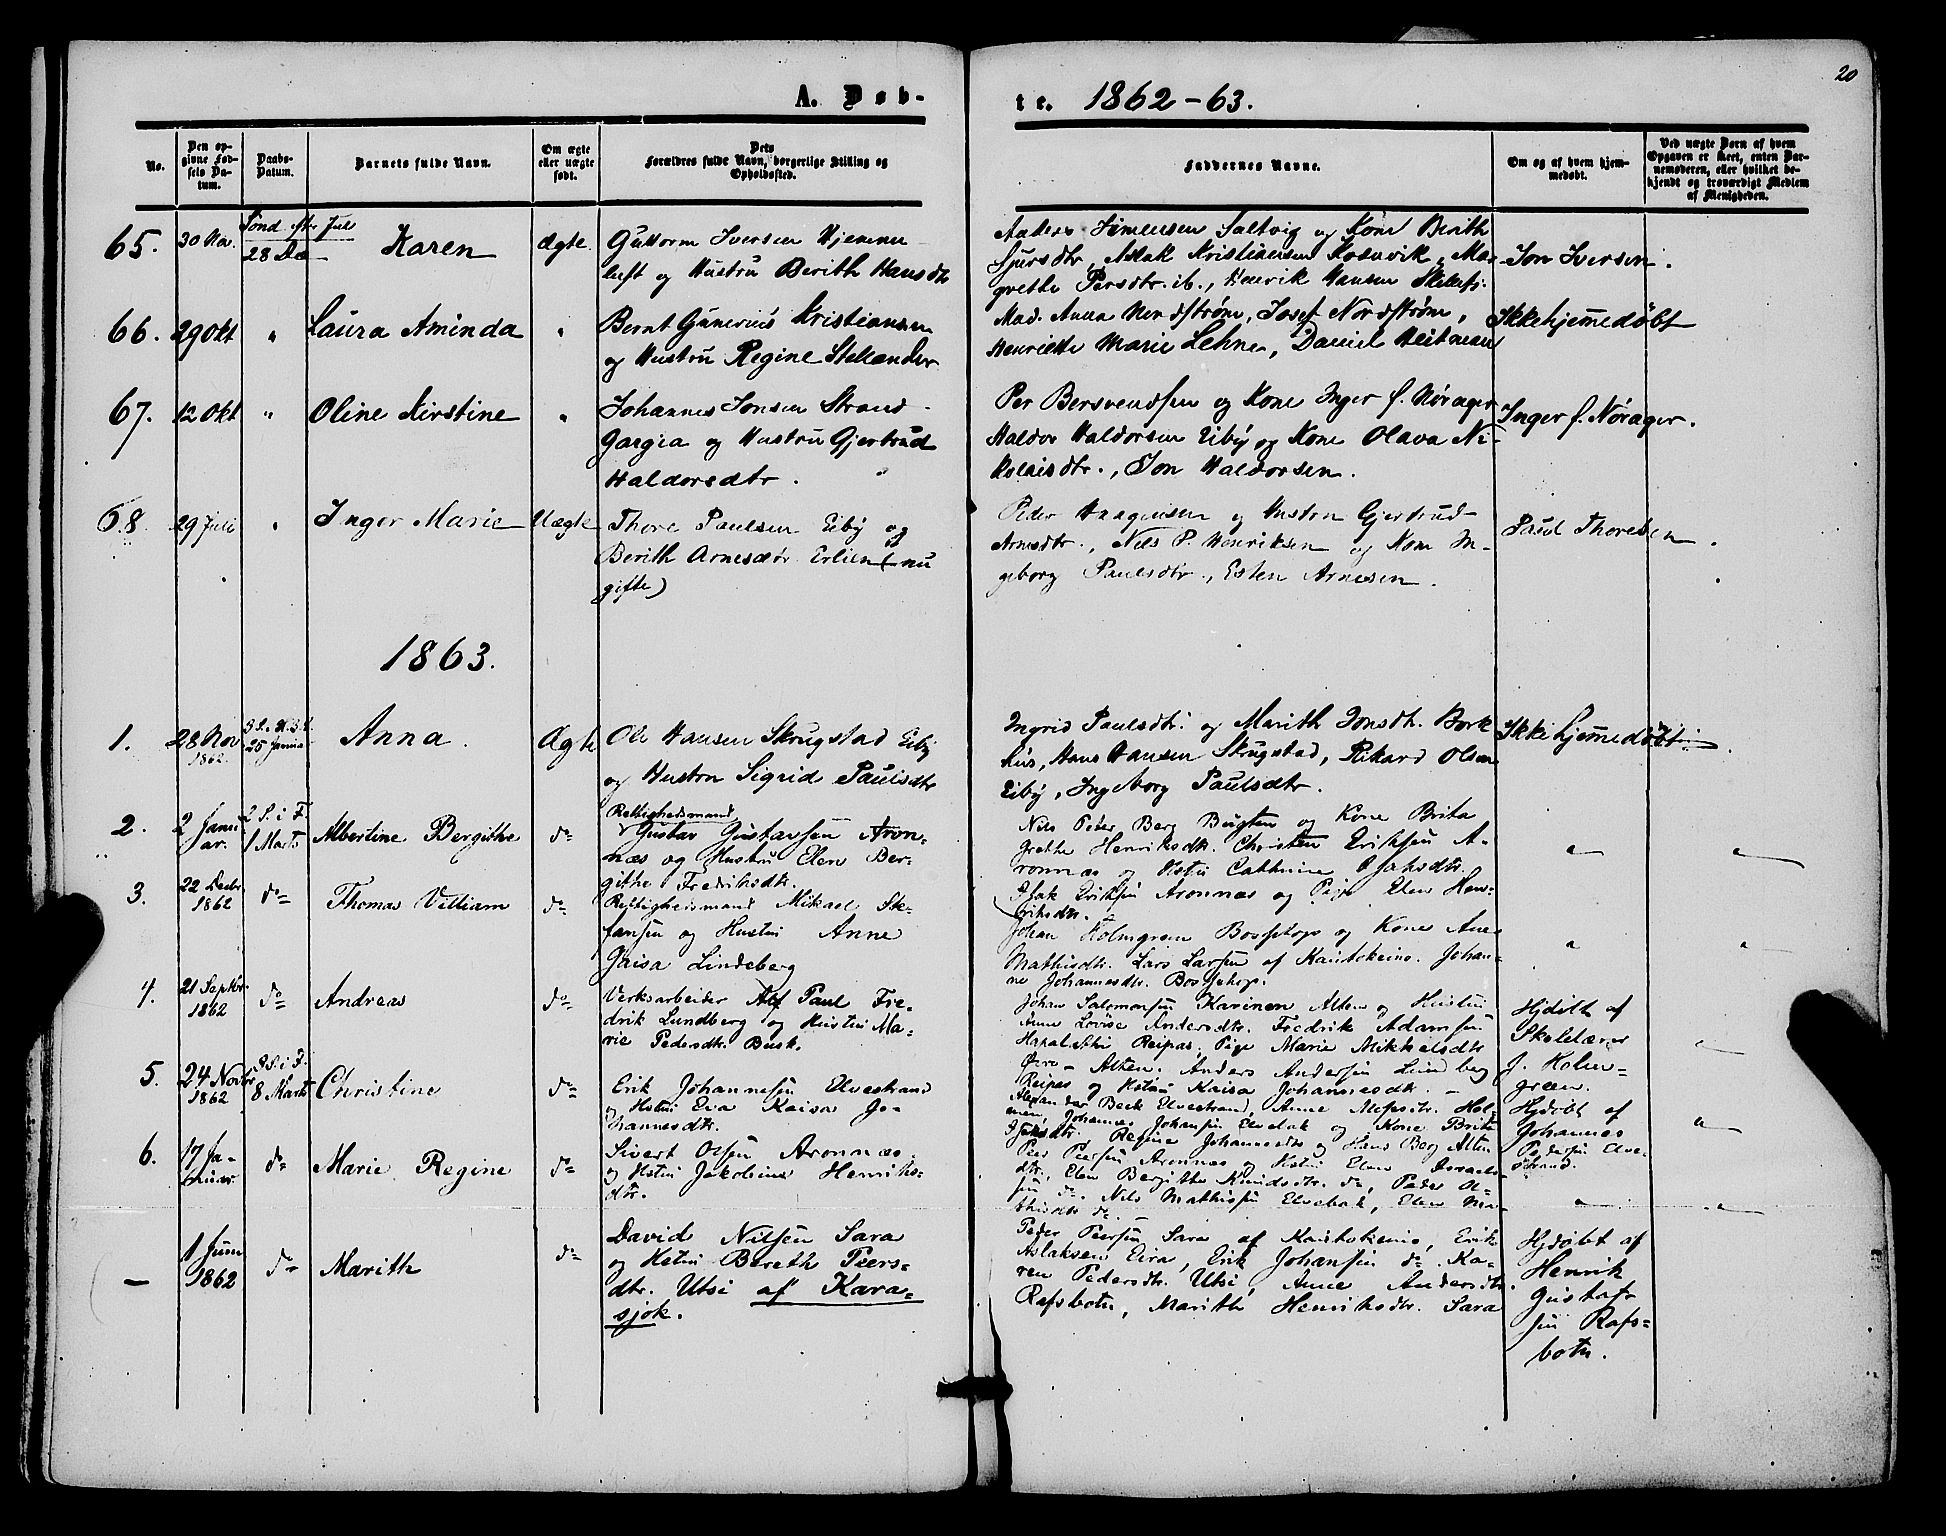 20
A. Døb-
te. 1862-63.
No.
Den op-
givne Fød-
sels Da-
tum.
Daabs-
Datum.
Barnets fulde Navn.
Om ægte
eller uægte
født.
Dets
Forældres fulde Navn, borgerlige Stilling og
Opholdssted.
Faddernes Navne.
Om og af hvem hjem-
medøbt.
Ved uægte Børn af hvem
Opgaven er skeet, enten Bar-
nemoderen, eller hvilket be-
kjendt og troværdigt Medlem
af Menigheden.
65.
30 Nov.
Sønd efter Jule
28 De
Karen
Ægte
Guttorm Iversen Hjemme
luft og Hustru Berith Hansdtr
Anders Simensen Saltvig og Kone Berith
Sjursdtr, Aslak Kristiansen Kosuvik, Ma-
grethe Persdtr. ib., Henrik Hansen
Jon Iversen.
66.
29 Okt
"
Laura Aminda
"
Bernt Gunerius Kristiansen
og Hustru Regine Stellander
Mad. Anna Nordstrøm, Josef Nordstrøm,
Henriette Marie Lehne, Daniel Heitman
Ikke hjemedøbt
67.
12 Okt
"
Oline Kirstine
"
Johannes Jonsen Strand
Gargia og Hustru Gjertrud
Haldorsdtr.
Per Bersvendsen og Kone Inger f. Nørager
Haldor Haldorsen Eiby og Kone Olava Ni-
kolaisdtr., Jon Haldorsen.
Inger f. Nørager.
68.
29 Juli
"
Inger Marie
Uægte
Thore Paulsen Eiby og
Berith Arnesdtr. Erlien (nu
gifte)
Peder Haagensen og Hustru Gjertrud
Arnesdtr., Nils P. Henriksen og Kone In-
geborg Paulsdtr., Esten Arnesen.
Paul Thoresen
1863.
1.
28 Nov
1862.
25 Janua
Anna.
Ægte
Ole Hansen Skrugstad Eiby
og Hustru Sigrid Paulsdtr
Ingrid Paulsdtr. og Marith Jonsdtr. Bork
hus, Hans Hansen Skrugstad, Rikard Olsen
Eiby, Ingeborg Paulsdtr.
Ikke hjemedøbt.
2.
2 Janu
ar.
2 S. i F.
1 Marts
Albertine Bergitthe
do
Rettighedsmand
Gustav Gustavsen Aron-
næs og Hustru Elen Ber-
githe Fredriksdtr.
Nils Peder Berg Bugten og Kone Brita
Grethe Henriksdtr. Christen Eriksen A-
ronnæs og Hstru Cathrine Isaksdtr.
Isak Eriksen Aronnæs og Pige Elen Hen-
riksdtr.
"
"
3.
22 Decbr
1862
do
Thomas Villiam
do
Rettighedsmand Mikael Ste-
fansen og Hustru Anne
Gaisa Lindeberg
Johan Holmgren Bossekop og Kone Ane
Mathisdtr. Lars Larsen af Kautokeino. Johan-
ne Johannesdtr. Bossekop.
"
"
4.
21 Septbr.
1862
do
Andreas
do
Verksarbeider Alf Paul Fre-
drik Lundberg og Hustru Ma-
rie Pedersdtr. Busk.
Johan Salomonsen Karinen Alten og Hustru
Anne Lovise Andersdtr. Fredrik Adamsen
Hapalathi Reipas, Pige Marie Mikkelsdtr
Øvre-Alten. Anders Andersen Lindberg
Reipas og Hstru Kaisa Johannesdtr. -
Hjdøbt af
Skolelærer
J. Holm-
green.
"
5.
24 Novbr
1862
3 S. i F.
8 Marts
Christine
do
Erik Johannesen Elvestrand
og Hstru Eva Kaisa Jo-
hannesdtr.
Alexander Beck Elvestrand, Anne Hol-
men, Johannes Johansen Elvebak og Kone Brite
Isaksdtr. Regine Johannesdtr og Hans Berg Alten
Hjdøbt af
Johannes
Pedersen Elve-
strand.
"
6.
17 Ja-
nuar
do
Marie Regine
do
Sivert Olsen Aronnæs
og Hstru Jakobine Henriks-
dtr.
Peer Peersen Aronnæs og Hstru Elen Israels-
dtr. Elen Bergitthe Knudsdtr. do, Peder Ol-
sen do. Nils Mathisen Elvebak, Elen Ma-
thisdtr do.
"
"
-
1 Juni
1862
do
Marith
do
David Nilsen Sara
og Hstru Bereth Peers-
dtr. Utsi af Kara-
sjok.
Peder Peersen Sara af Kautokeino, Erik
Aslaksen Eira, Erik Johansen do. Ka-
ren Pedersdtr. Utsi, Anne Andersdtr.
Rafsbotn, Marith Henriksdtr. Sara
Hjdøbt af
Henrik
Gustaf-
sen Rafs-
botn.